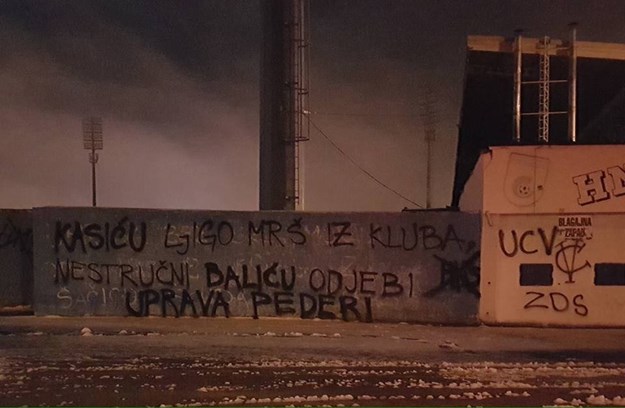 KASIĆU LJIGO MRŠ IZ KLUBA,
NESTRUČNI BALIĆU ODJEBI
UPRAVA PEDERI
BLAGAJNA
ZAPAD
UCV
ZDS